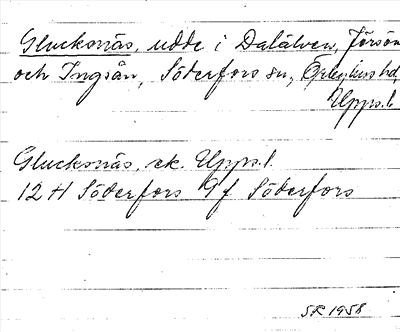 Glucksnäs, udde i Dalälven, Försön
och Ingsån, Söderfors sn, Örbyhus hd,
Upps. l.
Glucksnäs, ek. Upps. l.
12 H Söderfors 9 f Söderfors
SR 1958